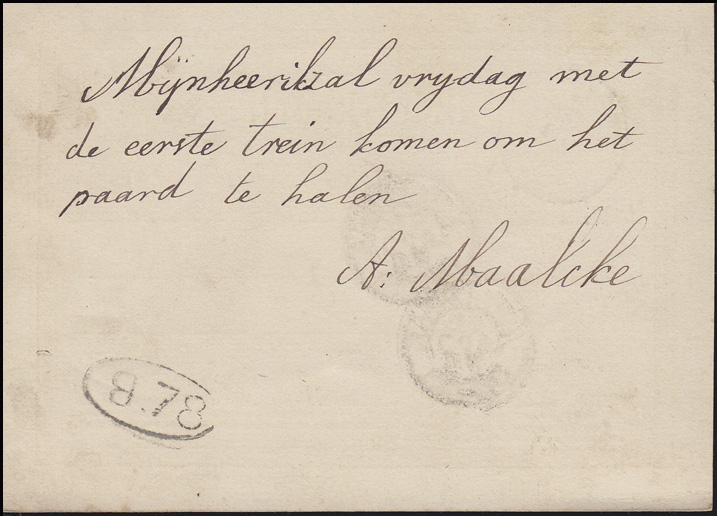 Mijnheer ik zal vrydag met
de eerste trein komen om het
paard te halen
A: Maalcke
B.78